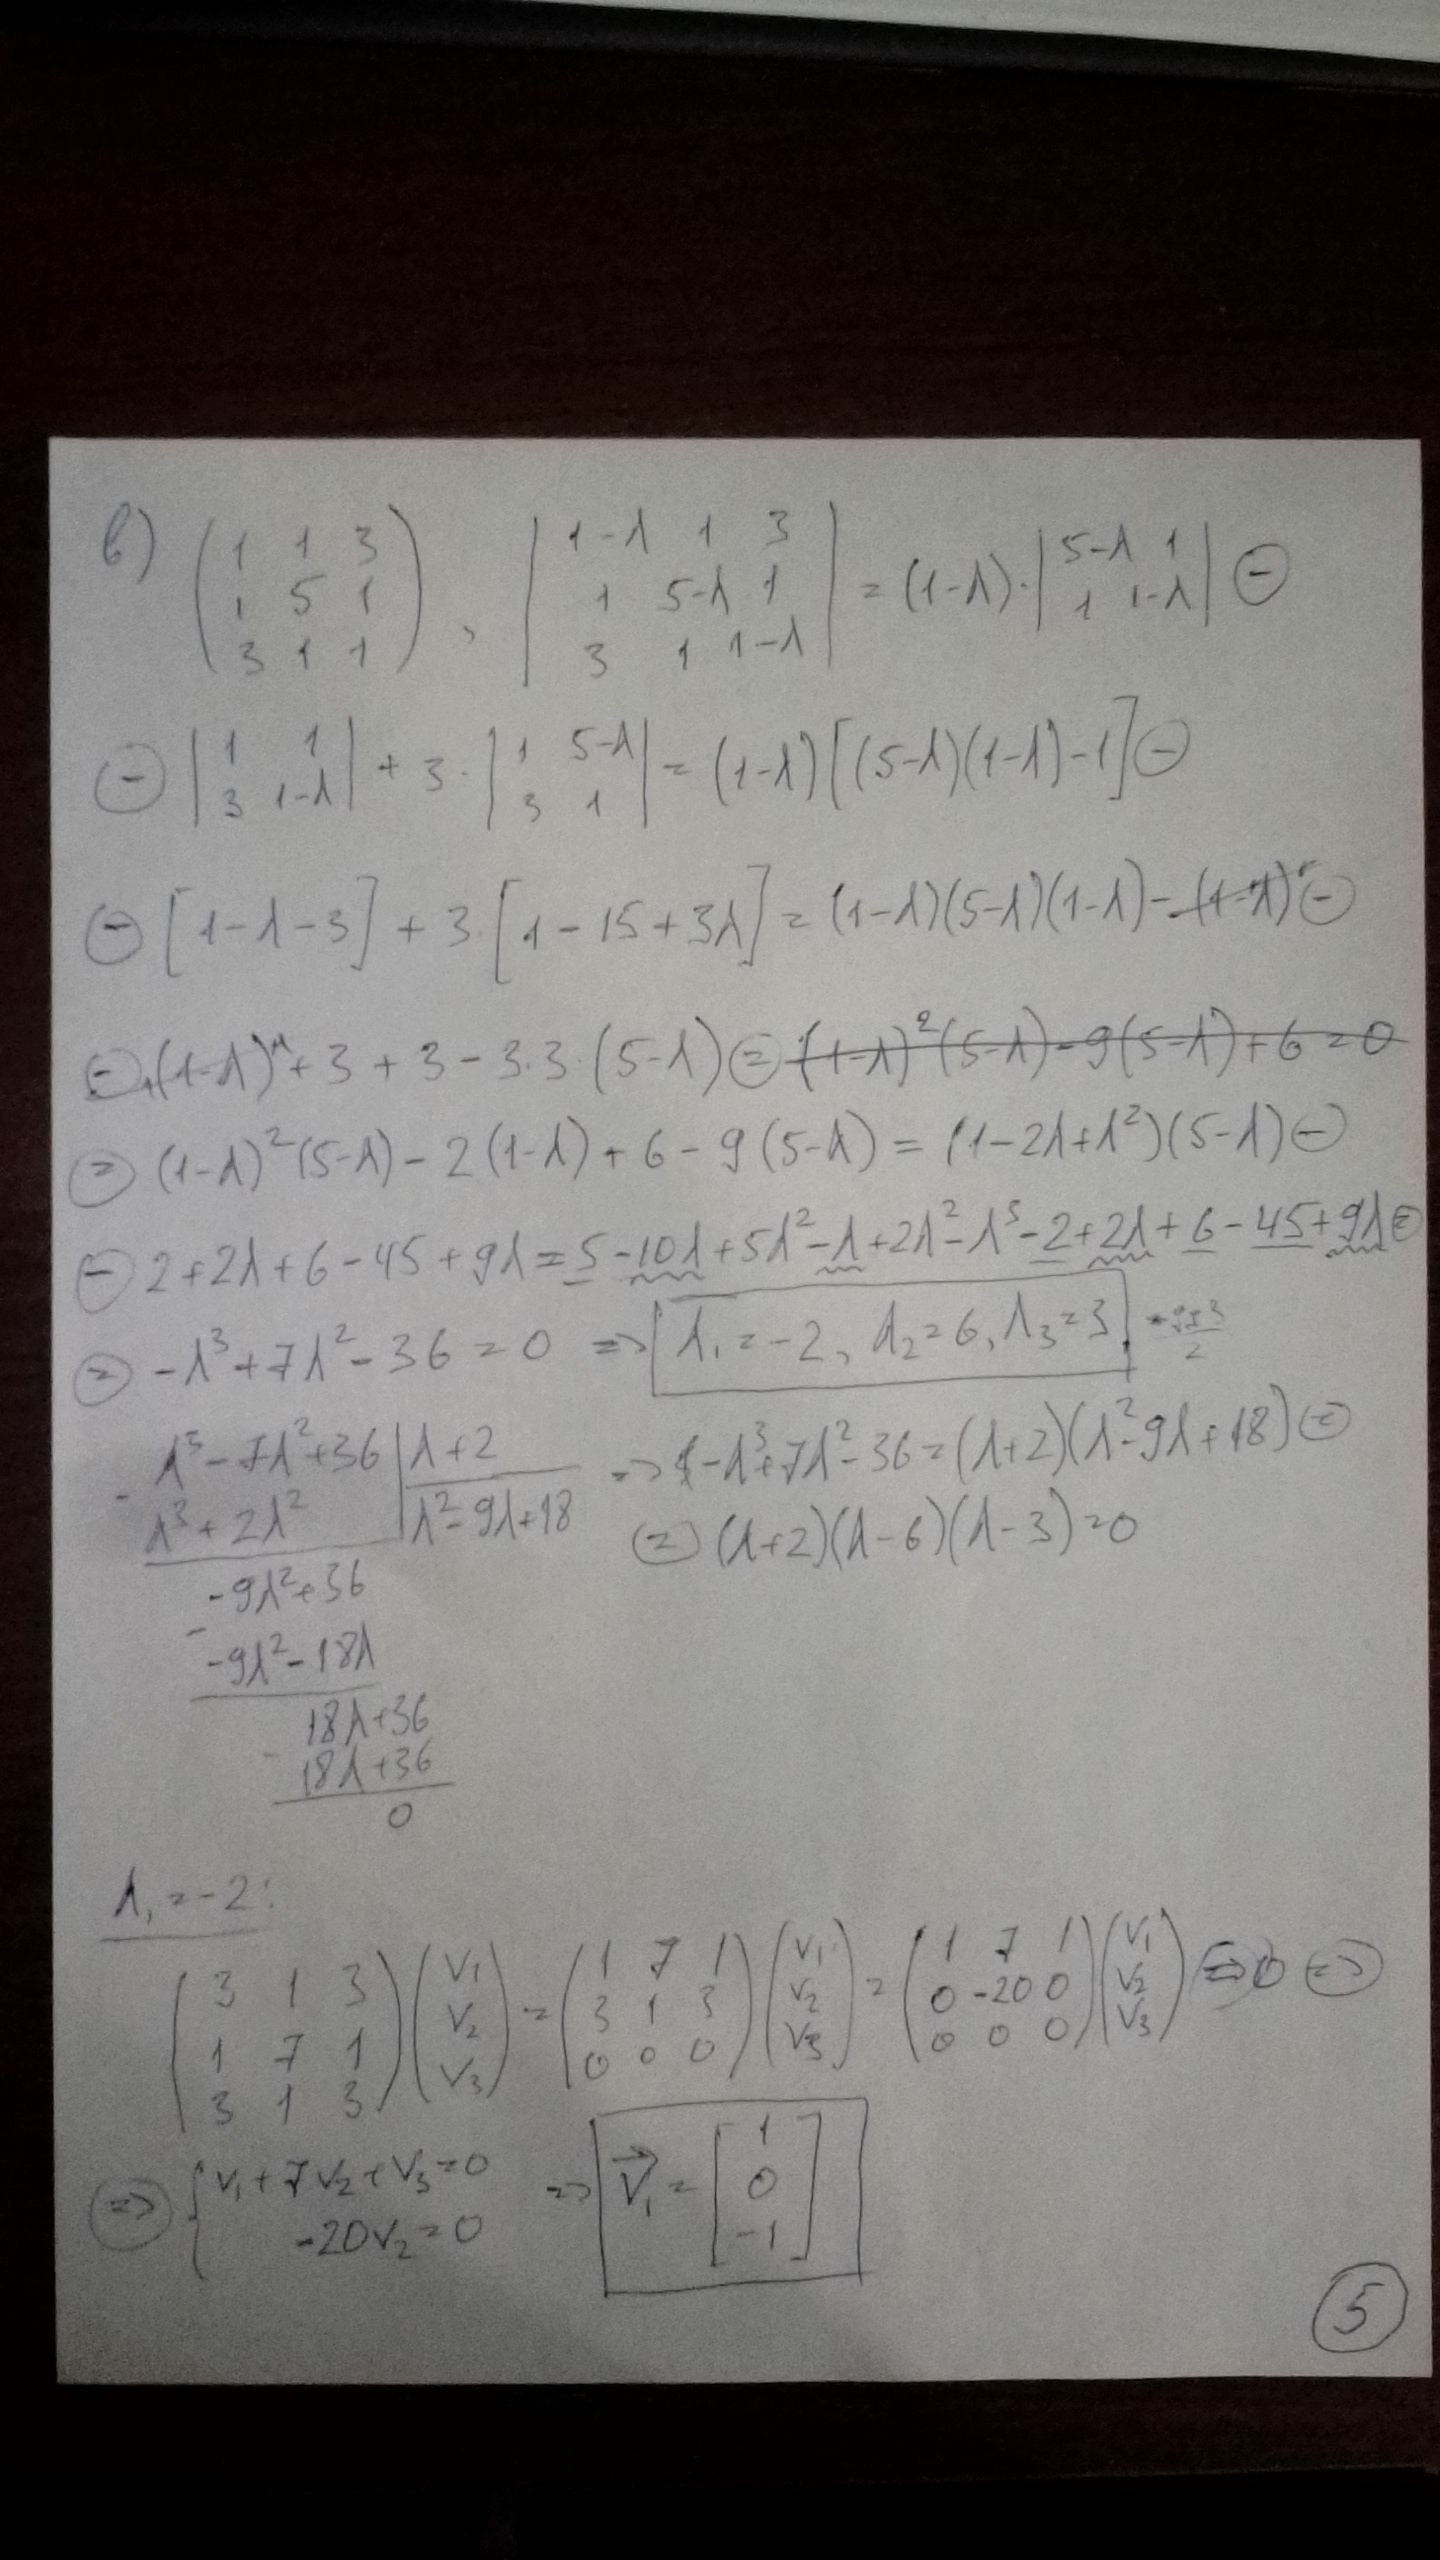 в) (1 1 3; 1 5 1; 3 1 1), |1-λ 1 3; 1 5-λ 1; 3 1 1-λ| = (1-λ)·|5-λ 1; 1 1-λ| ⊖
⊖ |1 1; 3 1-λ| + 3·|1 5-λ; 3 1| = (1-λ)[(5-λ)(1-λ)-1] ⊖
⊖ [1-λ-3] + 3·[1-15+3λ] = (1-λ)(5-λ)(1-λ) - (1-λ) ⊖
⊖ (1-λ) + 3 + 3 - 3·3·(5-λ) ⊜ (1-λ)²(5-λ) - 9(5-λ) + 6 = 0
⊜ (1-λ)²(5-λ) - 2(1-λ) + 6 - 9(5-λ) = (1-2λ+λ²)(5-λ) ⊖
⊖ 2+2λ+6-45+9λ = 5-10λ+5λ²-λ+2λ²-λ³-2+2λ+6-45+9λ ⊜
⊜ -λ³+7λ²-36=0 => λ₁=-2, λ₂=6, λ₃=3
λ³-7λ²+36 | λ+2 => -λ³+7λ²-36=(λ+2)(λ²-9λ+18) ⊜
- λ³+2λ² | λ²-9λ+18 ⊜ (λ+2)(λ-6)(λ-3)=0
-9λ²+36
- -9λ²-18λ
18λ+36
- 18λ+36
0
λ₁=-2:
(3 1 3; 1 7 1; 3 1 3)(v₁; v₂; v₃) = (1 7 1; 3 1 3; 0 0 0)(v₁; v₂; v₃) = (1 7 1; 0 -20 0; 0 0 0)(v₁; v₂; v₃) = 0 =>
=> { v₁+7v₂+v₃=0; -20v₂=0 => v⃗₁ = [1; 0; -1]
5